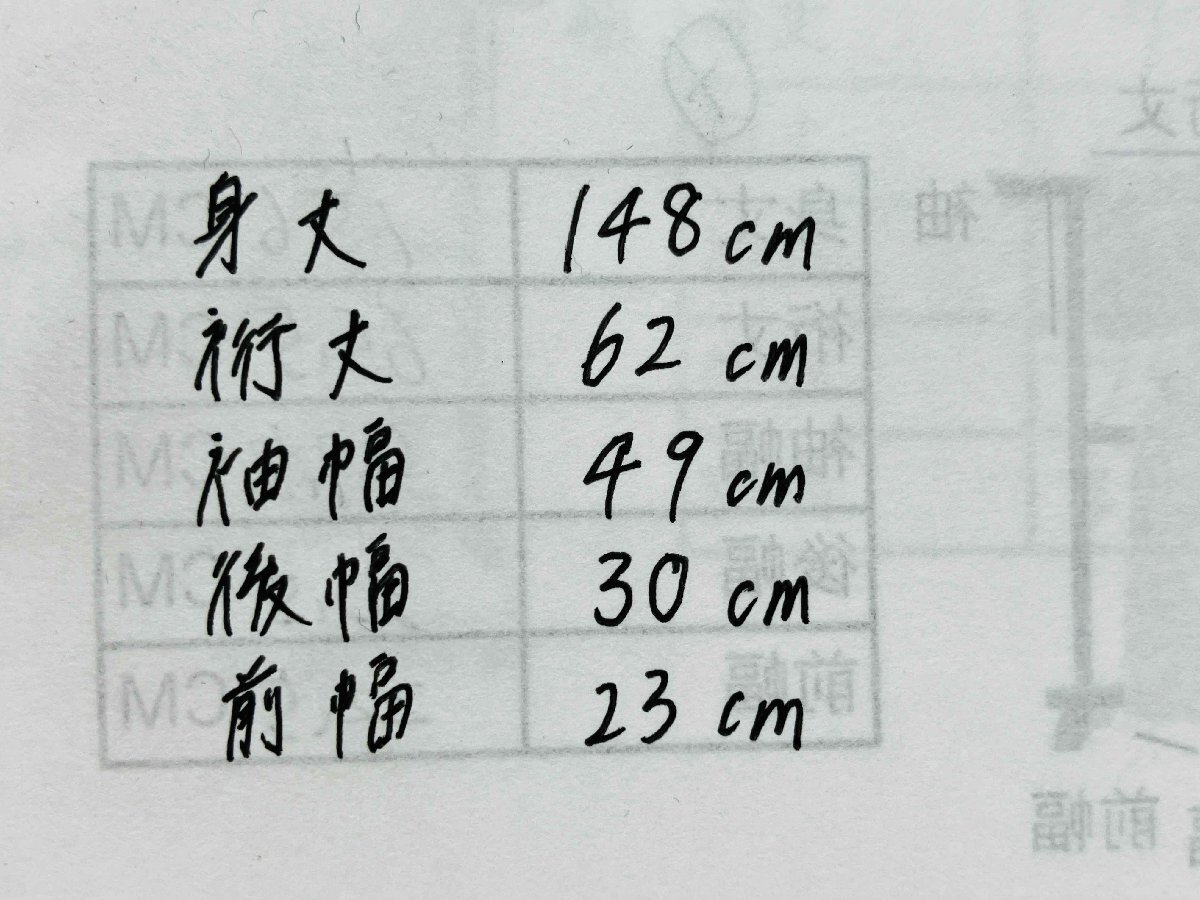 身丈 148cm
裄丈 62cm
袖幅 49cm
後幅 30cm
前幅 23cm